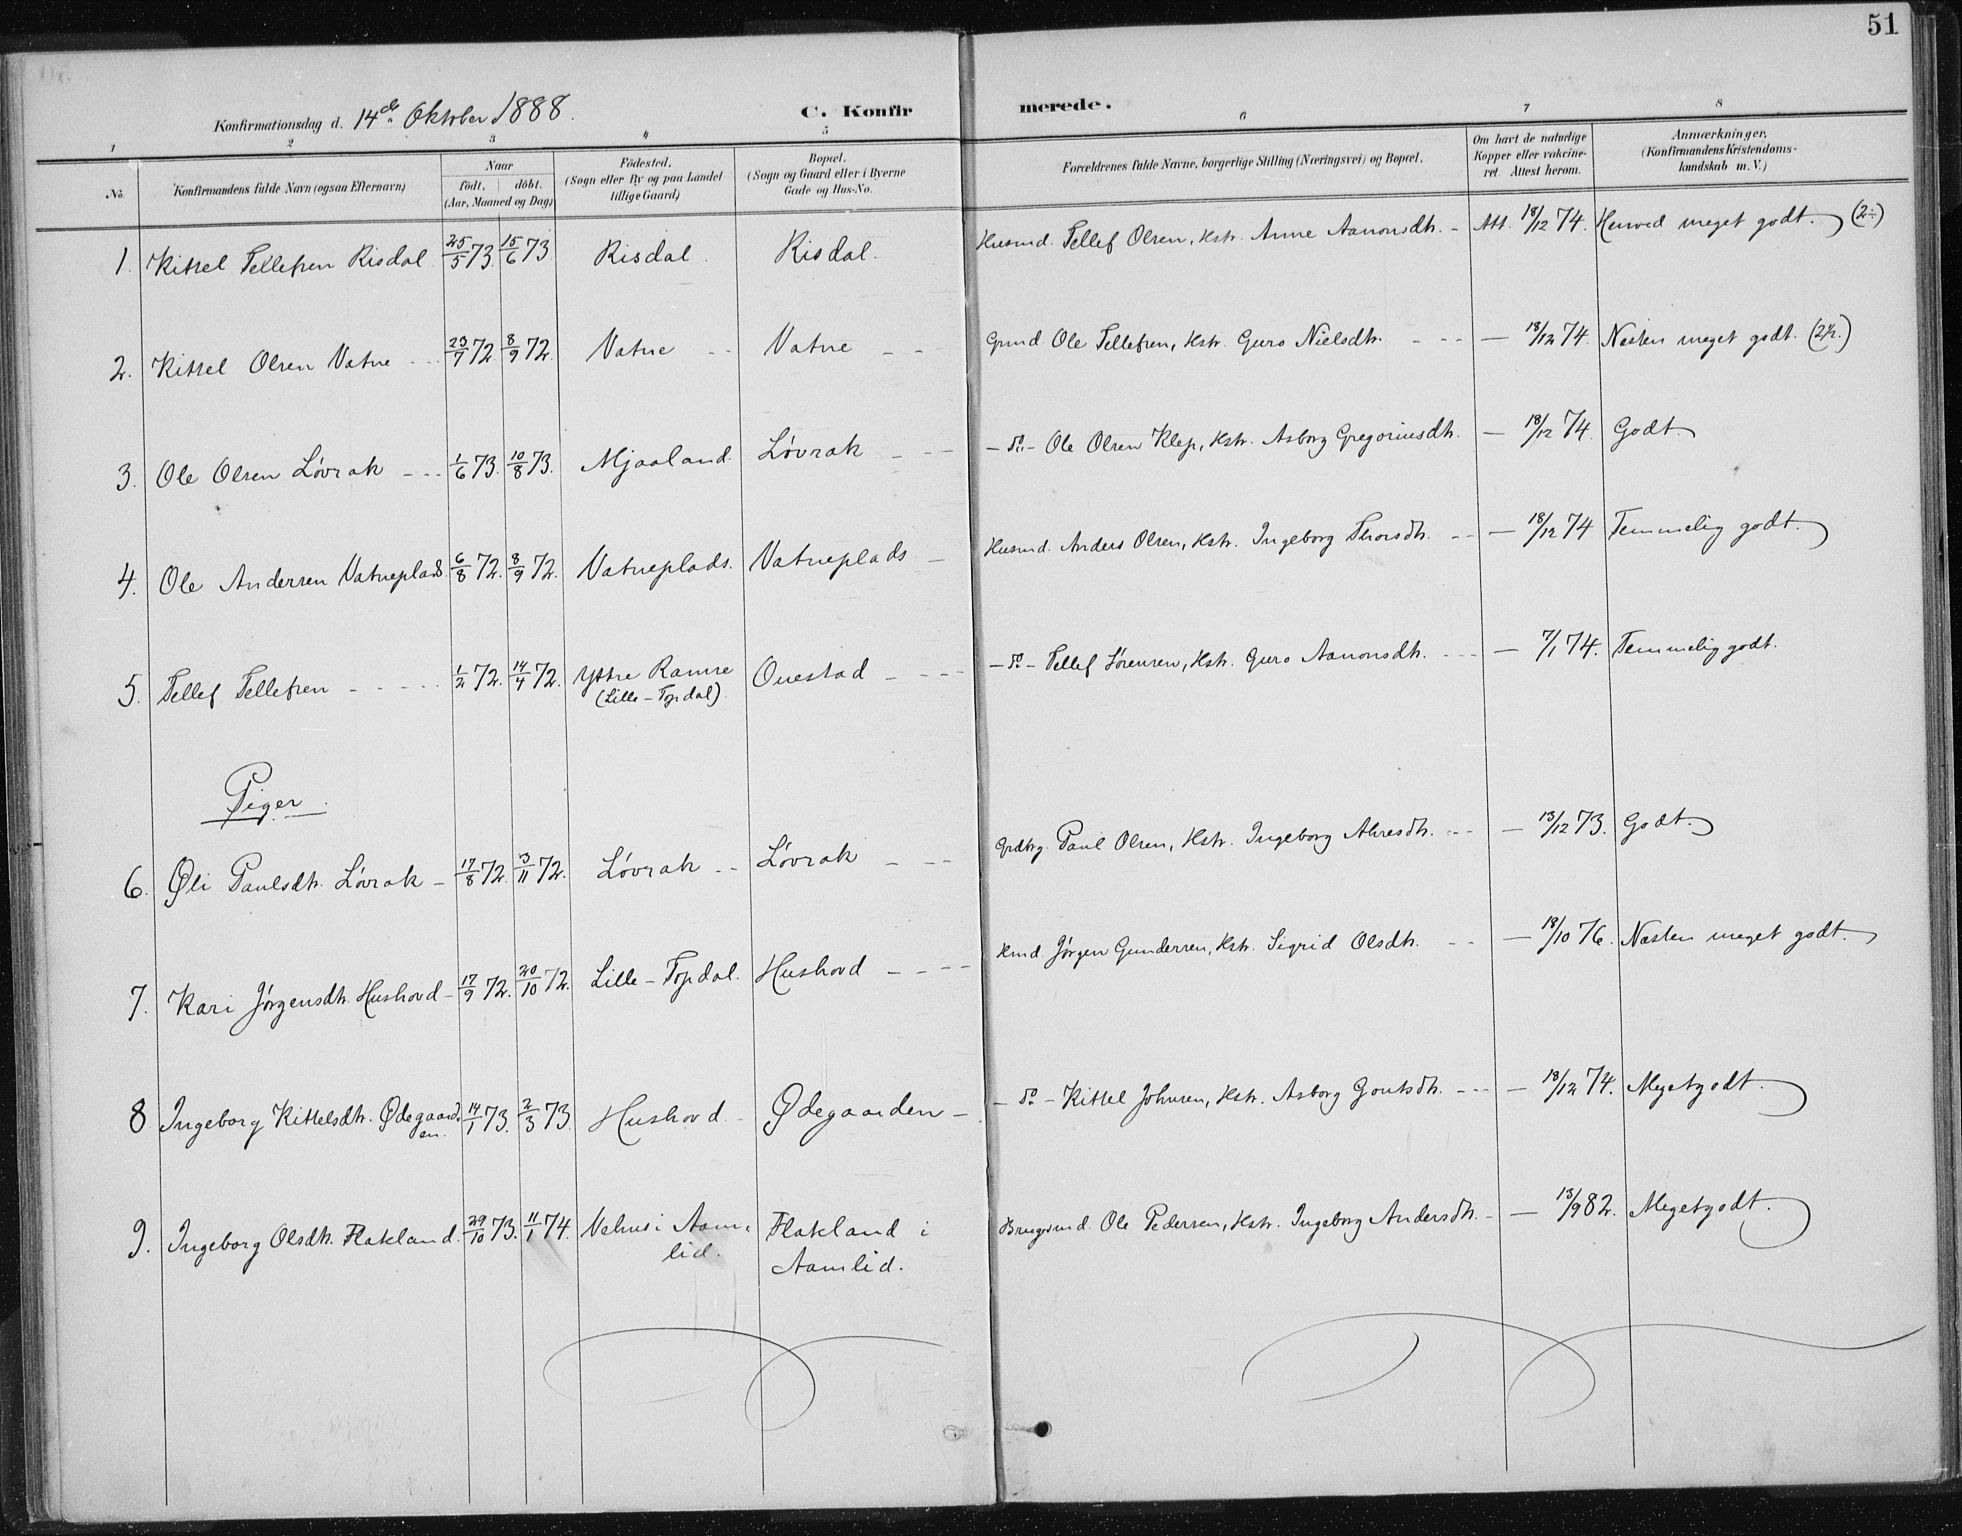 51
Konfirmationsdag d. 14de Oktober 1888.
C. Konfir merede.
1 2 3 4 5 6 7 8
No.
Konfirmandens fulde Navn (ogsaa Efternavn)
Naar
födt. döbt.
(Aar, Maaned og Dag)
Födested.
(Sogn eller By og paa Landet
tillige Gaard)
Bopæl.
(Sogn og Gaard eller i Byerne
Gade og Hus-No.
Forældrenes fulde Navne, borgerlige Stilling (Næringsvei) og Bopæl.
Om havt de naturlige
Kopper eller vakcine-
ret. Attest herom.
Anmærkninger.
(Konfirmandens Kristendoms-
kundskab m. V.)
1. Kittel Tellefsen Risdal 25/5 73. 15/6 73 Risdal. Risdal. Husmd. Tellef Olsen, Kstr. Anne Aanonsdtr. - Att. 18/12 74. Henved meget godt. (2÷)
2. Kittel Olsen Vatne 23/7 72. 8/9 72. Vatne Vatne Grmd. Ole Tellefsen, Kstr. Guro Nielsdtr. - 18/12 74. Næsten meget godt. (2½.)
3. Ole Olsen Lövrak 1/6 73. 10/8 73. Mjaaland. Lövrak - do - Ole Olsen Klep, Kstr. Asborg Gregoriusdtr. - 18/12 74. Godt.
4. Ole Andersen Vatneplads. 6/8 72. 8/9 72. Vatneplads. Vatneplads Husmd. Anders Olsen, Kstr. Ingeborg Thorsdtr. - 18/12 74 Temmelig godt.
5. Tellef Tellefsen 1/2 72. 14/4 72. Yttre Ramse Ouestad - do - Tellef Sörensen, Kstr. Guro Aanonsdtr. - 7/1 74. Temmelig godt.
(Lille-Topdal).
Piger.
6. Øli Paulsdtr. Lövrak 17/8 72. 3/11 72. Lövrak Lövrak Grdbrg. Paul Olsen, Kstr. Ingeborg Alvesdtr. - 13/12 73. Godt.
7. Kari Jörgensdtr. Hushovd 17/9 72. 20/10 72. Lille-Topdal. Hushovd Kmd. Jörgen Gundersen, Kstr. Sigrid Olsdtr. - 18/10 76. Næsten meget godt.
8 Ingeborg Kittelsdtr. Ødegaard- 14/1 73. 2/3 73. Hushovd Ødegaarden - do - Kittel Johnsen, Kstr. Asborg Goutsdtr. - 18/12 74. Megetgodt.
en.
9. Ingeborg Olsdtr. Flakland. 29/10 73. 11/1 74. Vehus i Aam- Flakland i Brugsmd. Ole Pedersen, Kstr. Ingeborg Andersdtr. - 13/9 82. Megetgodt.
lid. Aamlid.